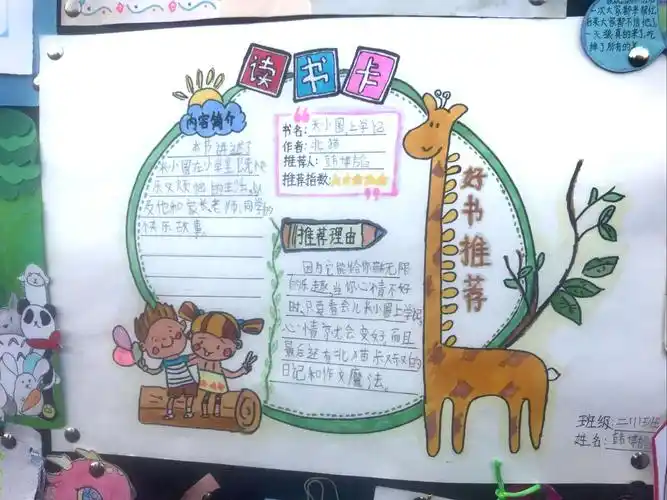 一次大家都来帮忙
后来大家都不信他了
一天狼真的来了,吃
掉了所有的羊
读书卡
内容简介
本书讲述了
米小圈在小学里
乐又烦恼的生活,以
及他和家长老师、同学的
快乐故事。
书名:米小圈上学记
作者:北猫
推荐人:韩博
推荐指数:
推荐理由
因为它能给你带无限
的乐趣,当你心情不好
时,只要看会儿米小圈上学记
心情就会变好,而且
最后还有北猫
日记和作文魔法。
好书推荐
班级:二(1)班
姓名:韩博